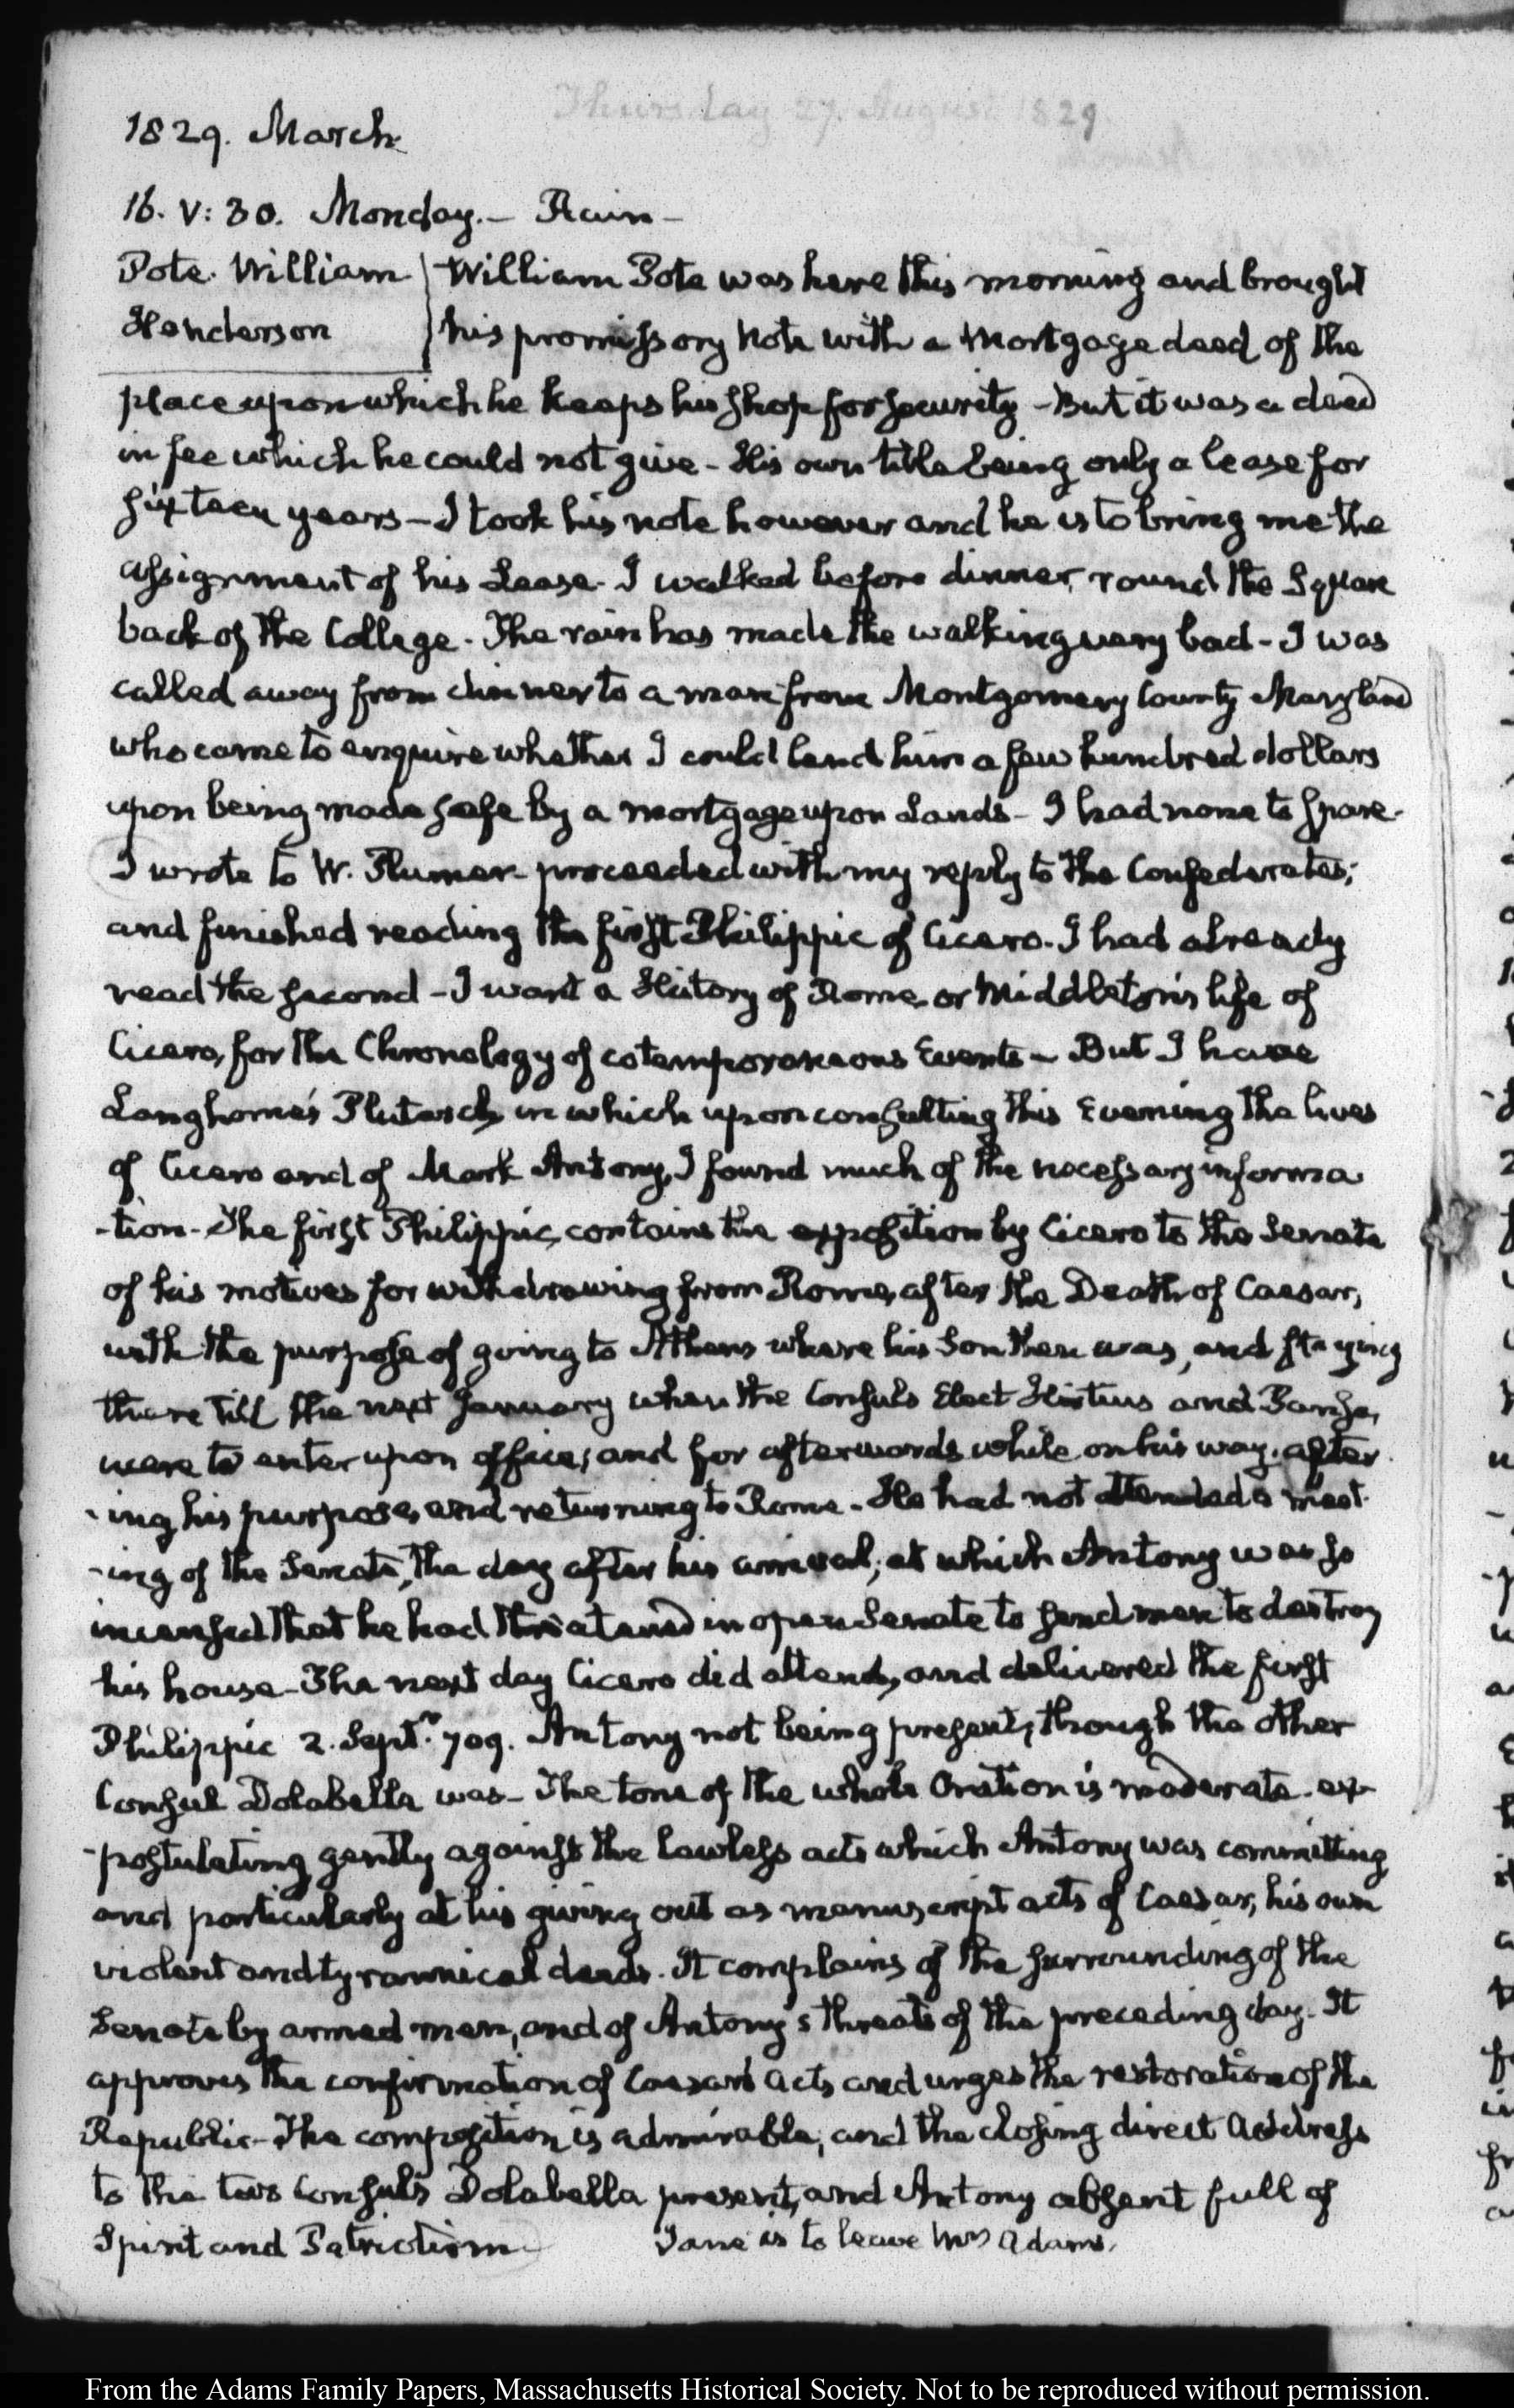 Thursday 27. August 1829
1829. March
16. V: 30. Monday.- Rain-
Pote. William
Henderson
William Pote was here this morning and brought
his promissory Note with a Mortgage deed of the
place upon which he keeps his shop for security - But it was a deed
in fee which he could not give - His own title being only a lease for
sixteen years - I took his note however and he is to bring me the
assignment of his Lease. I walked before dinner, round the Square
back of the College. The rain has made the walking very bad - I was
called away from dinner to a man from Montgomery County Maryland
who came to enquire whether I could lend him a few hundred dollars
upon being made safe by a mortgage upon Lands - I had none to spare.
I wrote to W. Plumer proceeded with my reply to the Confederates;
and finished reading the first Philippic of Cicero. I had already
read the second - I want a History of Rome or Middleton's life of
Cicero, for the Chronology of cotemporaneous Events - But I have
Langhorne's Plutarch in which upon consulting this Evening the lives
of Cicero and of Mark Antony, I found much of the necessary informa
-tion - The first Philippic, contains the exposition by Cicero to the Senate
of his motives for withdrawing from Rome, after the Death of Caesar,
with the purpose of going to Athens where his Son then was, and staying
there till the next January when the Consuls Elect Hirtius and Pansa,
were to enter upon office; and for afterwards while on his way, alter
-ing his purpose, and returning to Rome - He had not attended a meet
-ing of the Senate, the day after his arrival; at which Antony was so
incensed that he had threatened in open Senate to send men to destroy
his house - The next day Cicero did attend, and delivered the first
Philippic 2. Septr. 709. Antony not being present, though the other
Consul Dolabella was - The tone of the whole Oration is moderate. ex
-postulating gently against the lawless acts which Antony was committing
and particularly at his giving out as manuscript acts of Caesar, his own
violent and tyrannical deeds. It complains of the surrounding of the
Senate by armed men, and of Antony's threats of the preceding day. It
approves the confirmation of Caesar's acts and urges the restoration of the
Republic - The composition is admirable, and the closing direct Address
to the two Consuls Dolabella present, and Antony absent full of
Spirit and Patriotism - Jane is to leave Mrs Adams.
From the Adams Family Papers, Massachusetts Historical Society. Not to be reproduced without permission.